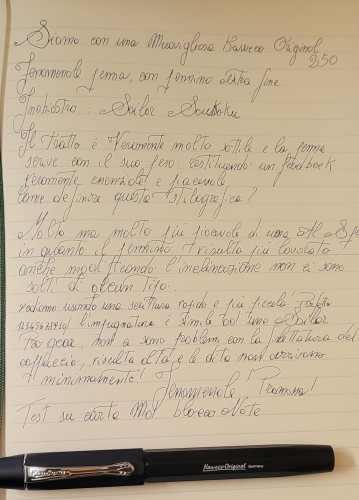 Siamo con una Meravigliosa Kaweco Original
250
Fenomenale penna, con pennino extra fine
Inchiostro : Sailor Souboku
Il tratto è Veramente molto sottile e la penna
scrive con il suo peso restituendo un feedback
veramente essenziale e piacevole
Come definire questa stilografica?
Molto ma molto più piacevole di una Al
in quanto il pennino risulta più lavorato
anche modificando l'inclinazione non ci sono
salti di alcun tipo.
vediamo usando una scrittura rapida e più piccola,
1234567890 l'impugnatura è simile ad una Sailor
Pro gear, non ci sono problemi con la filettatura del
cappuccio, risulta alta e le dita non arrivano
minimamente!
Fenomenale! Promossa!
Test su carta blocco Note
Kaweco Original Germany